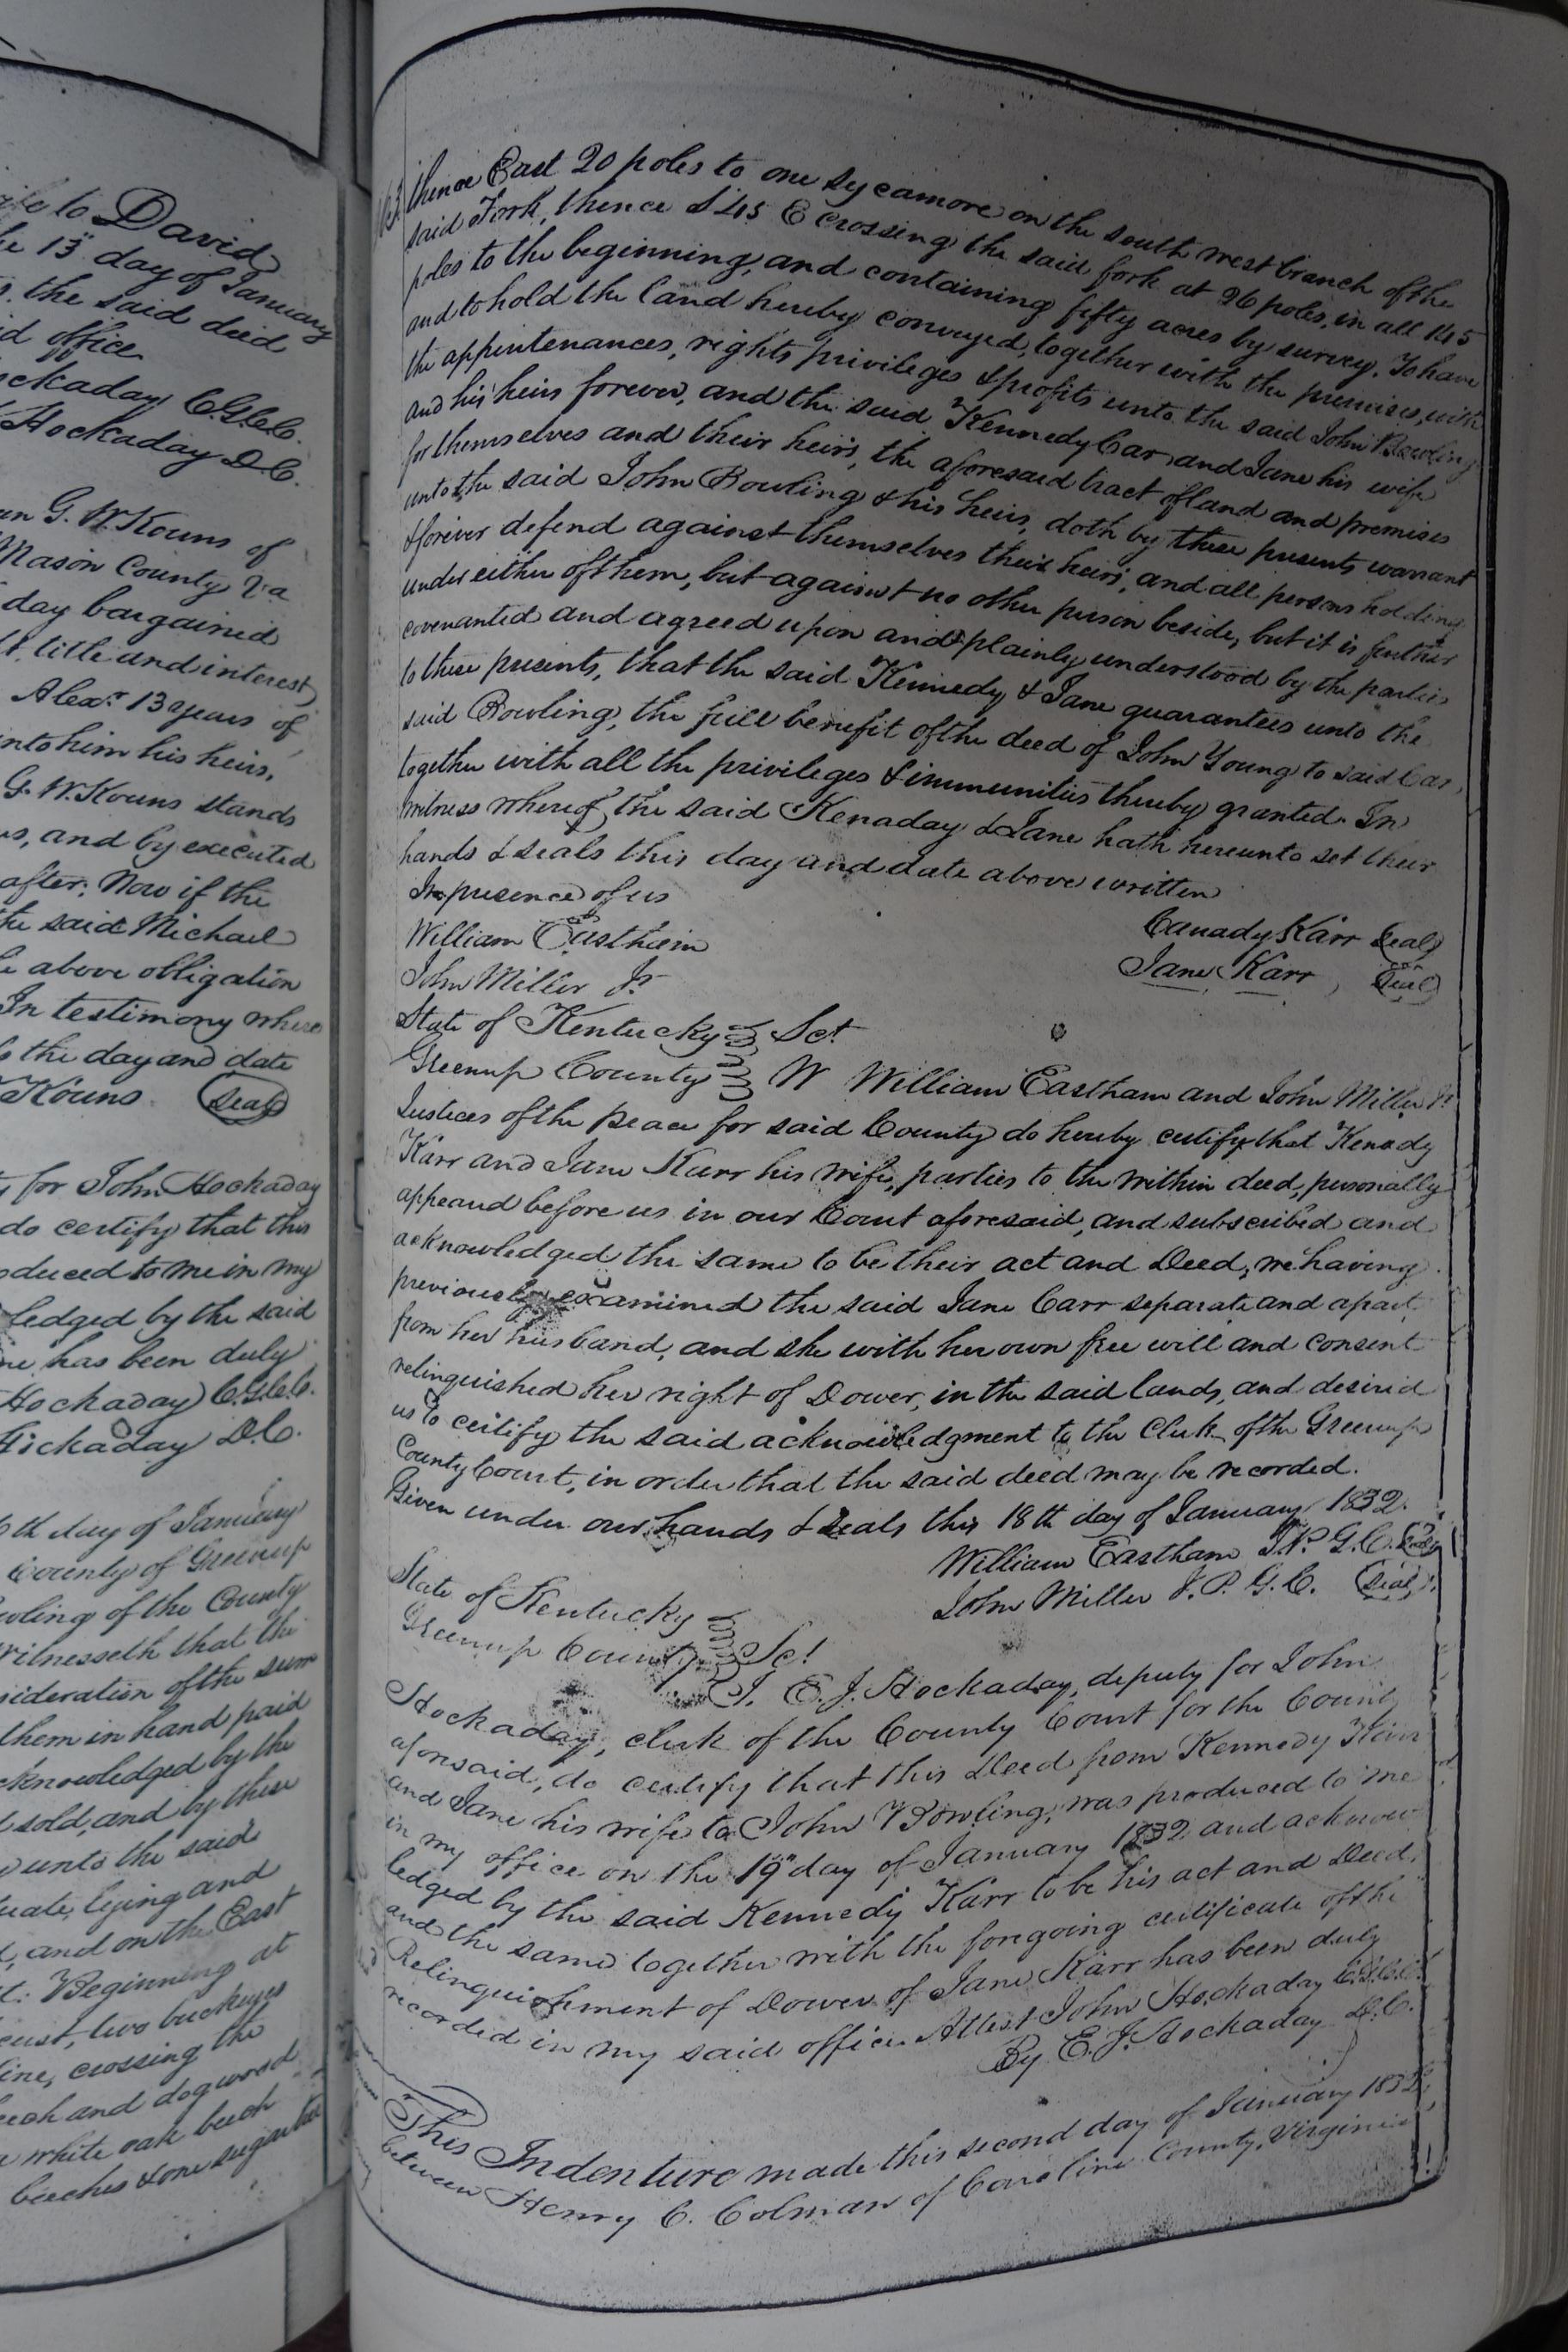 ife to David
he 13" day of January
the said deed
id office
ockaday C.G.C.C.
Hockaday D.C.
en G. W. Kouns of
Mason County Va
day bargained
title and interest
Alexr. 13 years of
into him his heirs,
G. W. Kouns stands
us, and by executed
after: Now if the
the said Michael
above obligation
In testimony where
the day and date
Kouns (Seal)
for John Hockaday
do certify that this
oduced to me in my
ledged by the said
me has been duly
Hockaday C.G.C.C.
Hockaday D.C.
th day of January
County of Greenup
owling of the County
Witnesseth that the
sideration of the sum
them in hand paid
cknowledged by the
sold, and by these
unto the said
uate, lying and
and on the East
Beginning at
two buckeyes
line, crossing the
beech and dogwood
white oak beech
beeches & one sugartree
thence East 20 poles to one sycamore on the south west branch of the
said Fork, thence S 45 E crossing the said fork at 26 poles, in all 145
poles to the beginning, and containing fifty acres by survey. To have
and to hold the land hereby conveyed, together with the premises, with
the appintenances, rights privileges & profits unto the said John Bowling
and his heirs forever, and the said Kennedy Car and Jane his wife
for themselves and their heirs, the aforesaid tract of land and premises
unto the said John Bowling & his heirs, doth by these presents warrant
& forever defend against themselves their heirs, and all persons holding
under either of them, but against no other person beside, but it is further
covenanted and agreed upon and plainly understood by the parties
to these presents, that the said Kennedy & Jane guarantees unto the
said Bowling, the full benefit of the deed of John Young to said Car,
together with all the privileges & immunities thereby granted. In
witness whereof the said Kenaday & Jane hath hereunto set their
hands & seals this day and date above written
In presence of us
William Eastham
Canady Karr (Seal)
John Miller Jr
Jane Karr (Seal)
State of Kentucky Sct
Greenup County W William Eastham and John Miller Jr
Justices of the peace for said County do hereby certify that Kenady
Karr and Jane Karr his wife, parties to the within deed, personally
appeared before us in our Count aforesaid, and subscribed and
acknowledged the same to be their act and Deed, we having
previously examined the said Jane Carr separate and apart
from her husband, and she with her own free will and consent
relinquished her right of Dower, in the said lands, and desired
us to certify the said acknowledgment to the Clerk of the Greenup
County Court, in order that the said deed may be recorded.
Given under our hands & seals this 18th day of January 1832.
William Eastham J.P. G.C. (Seal)
John Miller J.P. G.C. (Seal)
State of Kentucky
Greenup County Sct
I. E. J. Hockaday, deputy for John
Hockaday, clerk of the County Court for the County
aforesaid, do certify that this Deed from Kennedy Karr
and Jane his wife to John Bowling, was produced to me
in my office on the 19" day of January 1832 and acknow
ledged by the said Kennedy Karr to be his act and Deed,
and the same together with the foregoing certificate of the
Relinquishment of Dower of Jane Karr has been duly
recorded in my said office. Attest John Hockaday C.G.C.C.
By E. J. Hockaday D.C.
This Indenture made this second day of January 1832,
between Henry C. Colman of Caroline County, Virginia